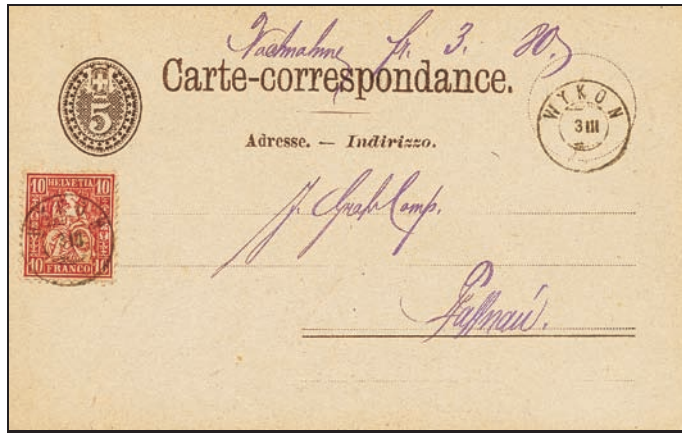 Nachnahme fr. 3. 80.
5
Carte-correspondance.
WYKON
3 III
Adresse. — Indirizzo.
10 HELVETIA 10
10 FRANCO 10
J. Graf Comp.
Pfaffnau.